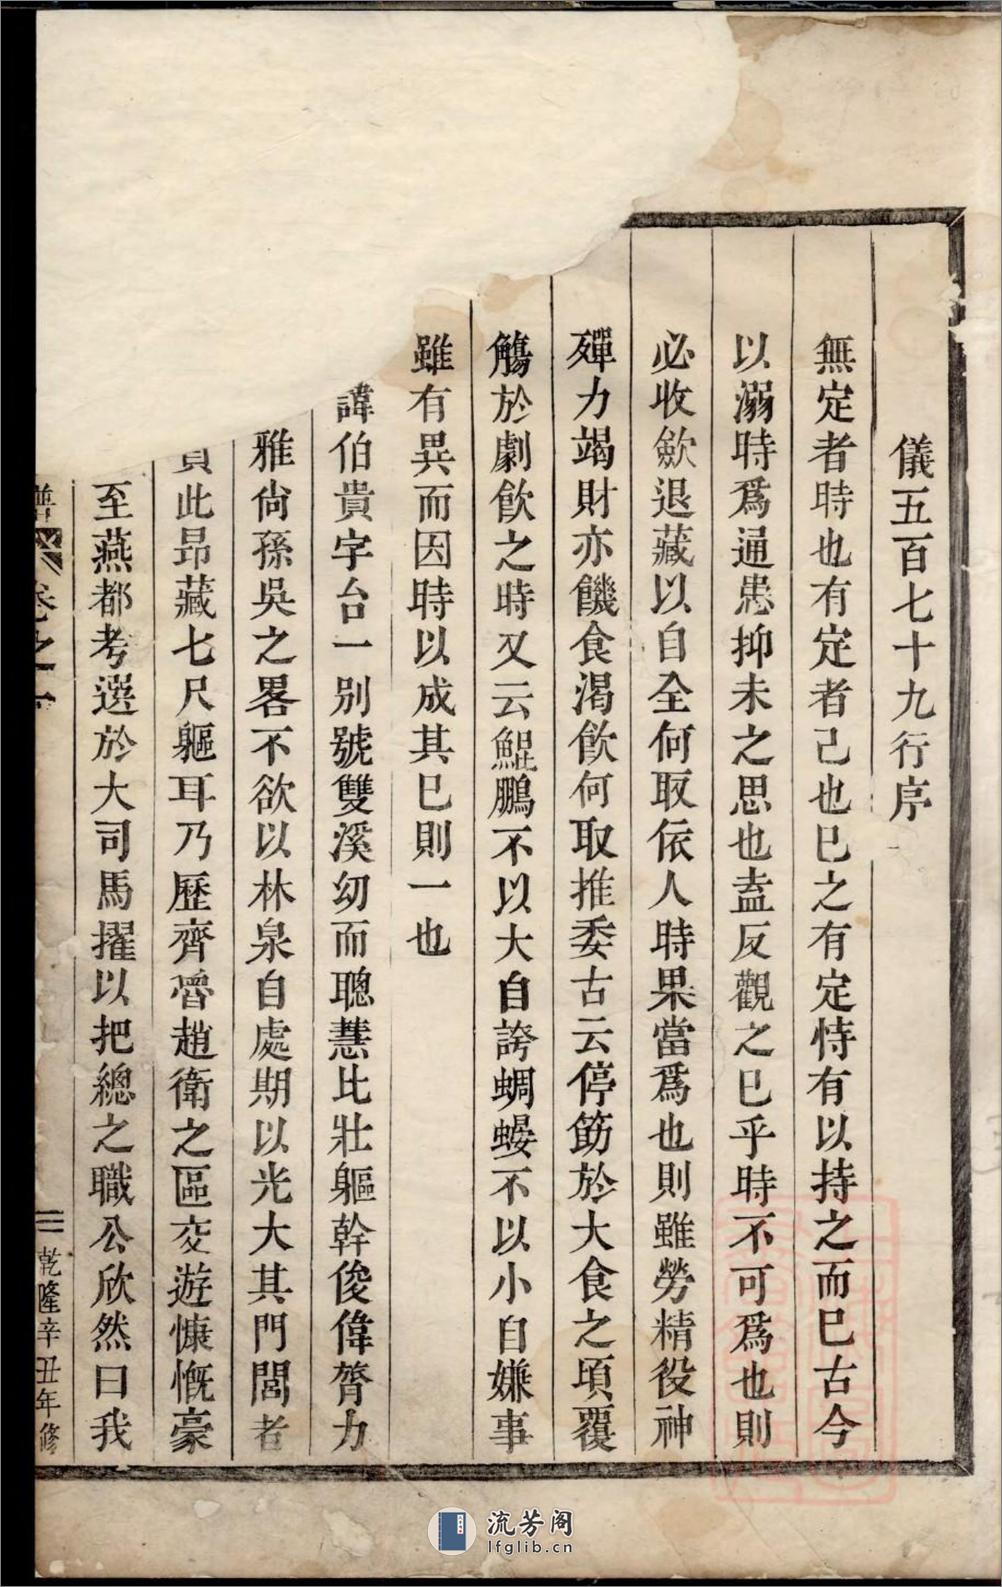 儀五百七十九行序
無定者時也有定者己也已之有定恃有以持之而已古今
以溺時爲通患抑未之思也盍反觀之已乎時不可爲也則
必收歛退藏以自全何取依人時果當爲也則雖勞精役神
殫力竭財亦饑食渴飲何取推委古云停筯於大食之頃覆
觴於劇飲之時又云鯤鵬不以大自誇蜩蝘不以小自嫌事
雖有異而因時以成其已則一也
諱伯貴字台一別號雙溪幼而聰慧比壯軀幹俊偉膂力
雅尙孫吳之畧不欲以林泉自處期以光大其門閭者
負此昂藏七尺軀耳乃歷齊魯趙衛之區交遊慷慨豪
至燕都考選於大司馬擢以把總之職公欣然曰我
譜 卷之一 三 乾隆辛丑年修
流芳阁
lfglib.cn